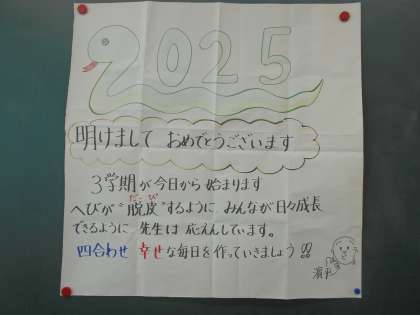 2025
明けまして おめでとうございます
3学期が今日から始まります
へびが"脱皮"するように みんなが日々成長
だっぴ
できるように 先生は 応えんしています。
四合わせ 幸せな毎日を作っていきましょう!!